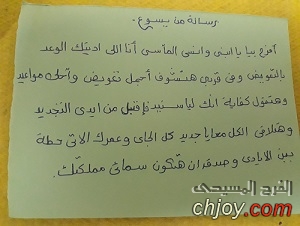 رسالة من يسوع.
افرح بيا يا ابنى وانسى المآسى أنا اللى اديتك الوعد
بالتعويض وفى قربى هتشوف أجمل تعويض وأحلى مواعيد
وهتقول كفاية انك لياسنيد من ايدى التجديد
وهتلاقى الكل معايا جديد كل الجاى وعمرك الآتى حطة
بين الأيادى وصدقنى هتكون سماتى مملكتك.
الفرح المسيحى
chjoy.com